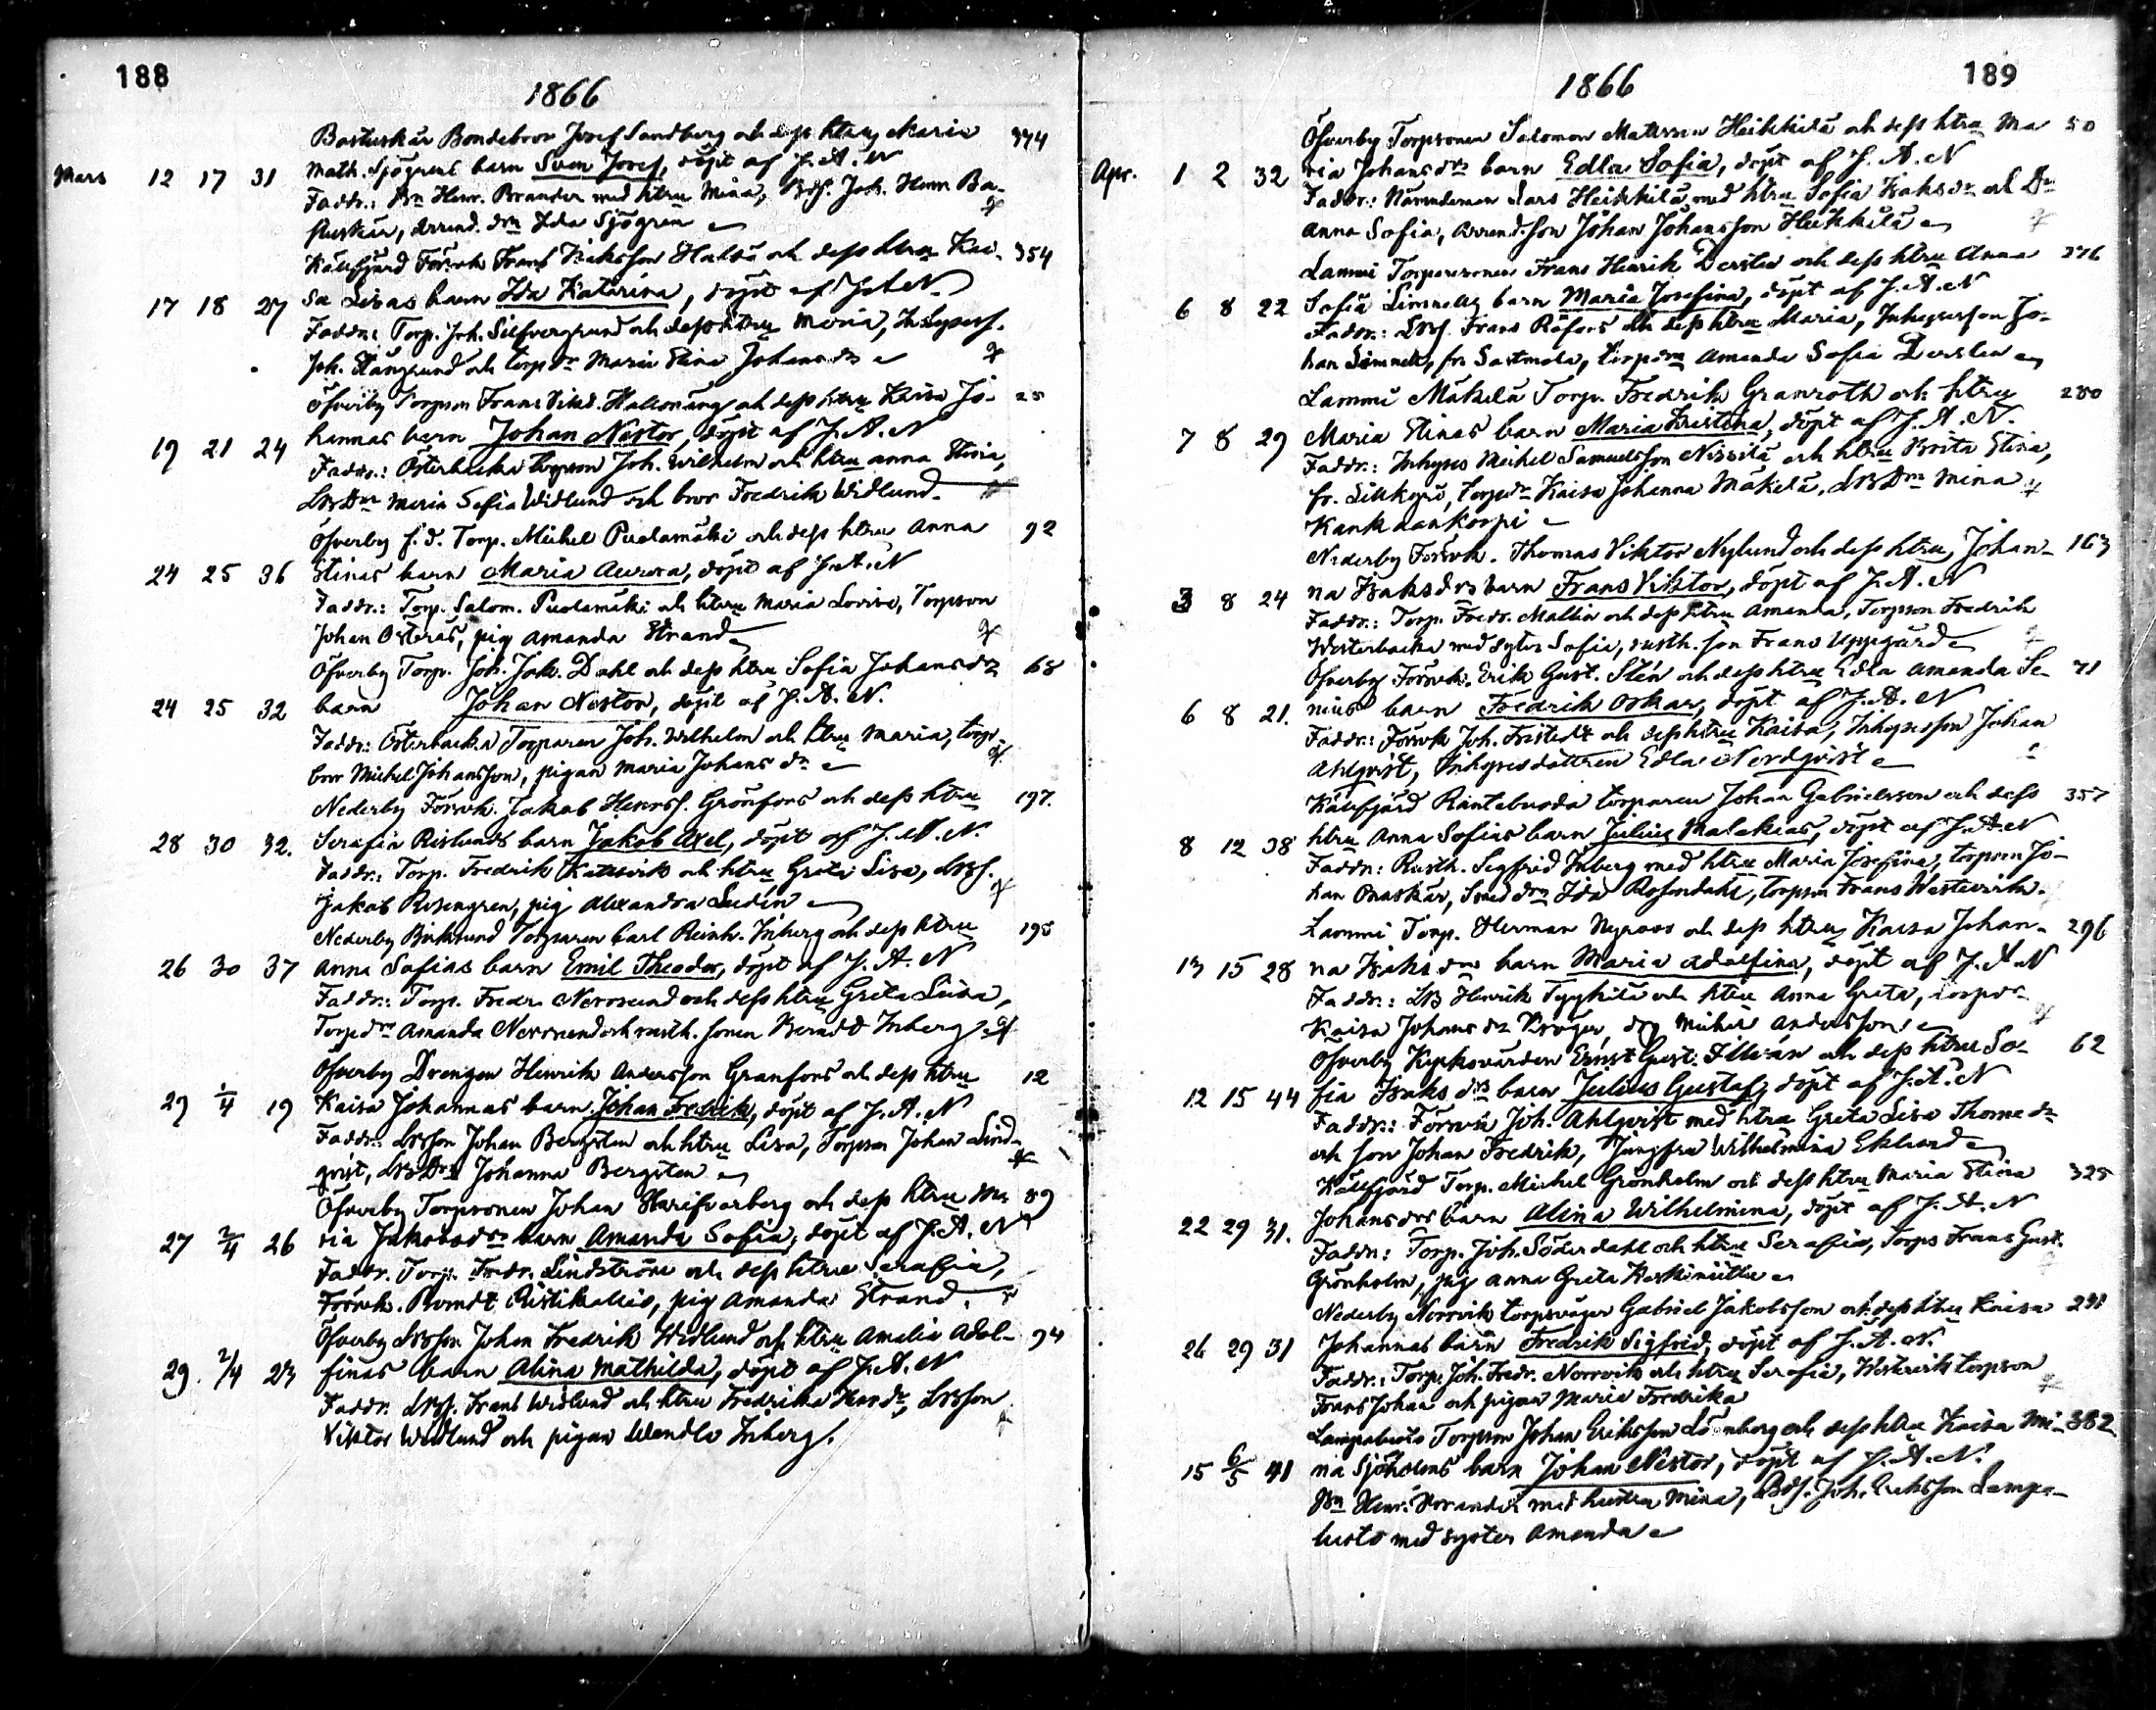 188
1866
Bastuskär Bondebror Josef Sandberg och dess htru Maria 374
Mars 12 17 31 Math. Sjögrens barn Sven Josef, döpt af J. A. N
Faddr.: Bn Henr. Brander med htru Mina, Bdf. Joh. Henr. Ba-
stuskär, drsn Ida Sjögren
Källfjärd Försvk Frans Isaksson Halsö och dess htru Kai- 354
17 18 27 sa Lisas barn Ida Katarina, döpt af J.A.N.
Faddr.: Torp. Joh. Silfvergrund och dess htru Maria, Inhysesf.
Joh. Stängrund och torpdr Maria Stina Johansdr
Öfverby Torpson Frans Vikt. Hallonäng och dess htru Kaisa Jo-
19 21 24 hannas barn Johan Nestor, döpt af J. A. N
Faddr.: Österbacka torpson Joh. Wilhelm och htru Anna Stina,
LBDn Maria Sofia Widlund och bror Fredrik Widlund.
Öfverby f. d. Torp. Mickel Puolamäki och dess htru Anna 92
24 25 36 Stinas barn Maria Aurora, döpt af J.A.N
Faddr.: Torp. Salom. Puolamäki och htru Maria Lovisa, Torpson
Johan Österås, pig Amanda Strand
Öfverby Torp. Joh. Jak. Dahl och dess htru Sofia Johansdr 68
24 25 32 barn Johan Nestor, döpt af J. A. N.
Faddr: Österbacka Torparen Joh. Wilhelm och htru Maria, torp.
bror Mickel Johansson, pigan Maria Johansdr
Nederby Försvk. Jakob Henrsf. Grönfors och dess htru 197.
28 30 32. Serafia Rislunds barn Jakob Axel, döpt af J. A. N.
Faddr.: Torp. Fredrik Kattelvik och htru Greta Lisa, LBSf.
Jakob Rosengren, pig Alexandra Ludén
Nederby Björknäsund Torparen Carl Reinh. Inberg och dess htru 198
26 30 37 Anna Sofias barn Emil Theodor, döpt af J. A. N
Faddr.: Torp. Fredr. Norrsund och dess htru Greta Lisa,
Torpdrn Amanda Norrsund och rusth. sonen Berndt Inberg
Öfverby Drengen Henrik Andersson Granfors och dess htru 12
29 1/4 19 Kaisa Johannas barn Johan Fredrik, döpt af J. A. N
Faddr.: LBSson Johan Bergsten och htru Lisa, Torpson Johan Lind-
qvist, LBDn Johanna Bergsten
Öfverby Torpsonen Johan Harifverberg och dess htru Ma 89
27 2/4 26 ria Jakobsdrs barn Amanda Sofia, döpt af J. A. N
Faddr. Torp. Fredr. Lindström och dess htru Serafia,
Försvk. Berndt Ristikallio, pig Amanda Strand.
Öfverby LBSson Johan Fredrik Widlund och htru Amalia Adol- 94
29. 2/4 23 finas barn Alina Mathilda, döpt af J. A. N
Faddr. LBSf. Frans Widlund och htru Fredrika Henrdr, LBSson
Viktor Widlund och pigan Wendla Inberg.
189
1866
Öfverby Torpsonen Salomon Mattsson Heikkilä och dess htru Ma 50
Apr. 1 2 32 ria Johansdrs barn Edla Sofia, döpt af J. A. N
Faddr.: Nämndeman Lars Heikkilä med htru Sofia Isaksdr och Dn
Anna Sofia, Arrend.son Johan Johansson Heikkilä
Lammi Torparesonen Frans Henrik Dersten och dess htru Anna 276
6 8 22 Sofia Limnells barn Maria Josefina, döpt af J. A. N
Faddr.: LBSf. Frans Råfors och dess htru Maria, Inhysesson Jo-
han Limnell, fr Sastmola, torpdrn Amanda Sofia Dersten
Lammi Mäkelä Torp. Fredrik Granroth och htru 280
7 8 29 Maria Stinas barn Maria Kristina, döpt af J. A. N.
Faddr.: Inhyses Mickel Samuelsson Nissilä och htru Brita Stina,
fr. Siikajoki, torpdr Kaisa Johanna Mäkelä, LBDn Mina
Kankaankorpi
Nederby Försvk. Thomas Viktor Nylund och dess htru Johan- 163
3 8 24 na Isaksdrs barn Frans Viktor, döpt af J. A. N
Faddr.: Torp. Fredr. Mattila och dess htru Amanda, Torpson Fredrik
Westerbacka med syster Sofia, rusth. son Frans Uppegård
Öfverby Försvk. Erik Gust. Stén och dess htru Edla Amanda Se- 71
6 8 21. nius barn Fredrik Oskar, döpt af J. A. N
Faddr.: Försvk Joh. Fristedt och dess htru Kaisa, Inhysesson Johan
Ahlqvist, Inhysesdottren Edla Nordqvist
Källfjärd Räntebuoda torparen Johan Gabrielsson och dess 357
8 12 38 htru Anna Sofias barn Julius Malakias, döpt af J. A. N
Faddr: Rusth. Segfrid Inberg med htru Maria Josefina, torpson Jo-
han Onaskär, Smeddrn Ida Rosendahl, torpson Frans Westervik.
Lammi Torp. Herman Nyroos och dess htru Kaisa Johan- 296
13 15 28 na Isaksdrs barn Maria Adolfina, döpt af J. A. N
Faddr.: LB Henrik Tyykilä och htru Anna Greta, torpdr.
Kaisa Johansdr Kröger, drg Mickel Andersson.
Öfverby Kyrkovärden Ernst Gust. Illván och dess htru So- 62
12 15 44 fia Isaksdrs barn Julius Gustaf, döpt af J. A. N
Faddr.: Försvk Joh. Ahlqvist med htru Greta Lisa Thomasdr
och son Johan Fredrik, Jungfru Wilhelmina Eklund
Källfjärd Torp. Mickel Grönholm och dess htru Maria Stina 325
22 29 31. Johansdrs barn Alina Wilhelmina, döpt af J. A. N
Faddr: Torp. Joh. Söderdahl och htru Serafia, Torps Frans Gust.
Grönholm, pig Anna Greta Koskimütka
Nederby Norrvik torpsvåger Gabriel Jakobsson och dess htru Kaisa 291
26 29 31 Johannas barn Fredrik Sigfrid, döpt af J. A. N.
Faddr.: Torp. Joh. Fredr. Norrvik och htru Serafia, Westervik torpson
Frans Johan och pigan Maria Fredrika
Lampaluoto Torpson Johan Eriksson Lönnberg och dess htru Kaisa Mi- 382
15 6/5 41 na Sjöholms barn Johan Nestor, döpt af J. A. N.
Bn Henr. Brander med hustru Mina, Bdf. Joh. Eriksson Lampa-
luoto med syster Amanda